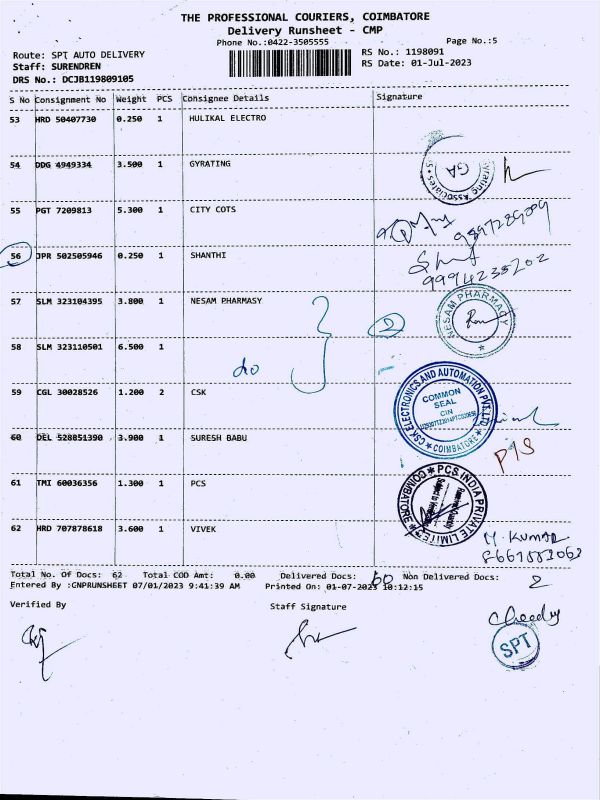 THE PROFESSIONAL COURIERS, COIMBATORE
Delivery Runsheet - CMP
Phone No.:0422-3505555 Page No.:5
Route: SPT AUTO DELIVERY RS No.: 1198091
Staff: SURENDREN RS Date: 01-Jul-2023
DRS No.: DCJB119809105
S No Consignment No Weight PCS Consignee Details Signature
53 HRD 50407730 0.250 1 HULIKAL ELECTRO
54 DDG 4949334 3.500 1 GYRATING
Gyrating Associates GA
55 PGT 7209813 5.300 1 CITY COTS
56 JPR 502505946 0.250 1 SHANTHI
9994235202
57 SLM 323104395 3.800 1 NESAM PHARMASY
2
NESAM PHARMACY
58 SLM 323110501 6.500 1
do
59 CGL 30028526 1.200 2 CSK
CSK ELECTRONICS AND AUTOMATION PVT.LTD
COMMON
SEAL
CIN
COIMBATORE
60 DEL 528851390 3.900 1 SURESH BABU
61 TMI 60036356 1.300 1 PCS
PCS INDIA PRIVATE LIMITED COIMBATORE
62 HRD 707878618 3.600 1 VIVEK
M. KUMAR
Total No. Of Docs: 62 Total COD Amt: 0.00 Delivered Docs: 60 Non Delivered Docs: 2
Entered By :CNPRUNSHEET 07/01/2023 9:41:39 AM Printed On: 01-07-2023 10:12:15
Verified By Staff Signature
SPT